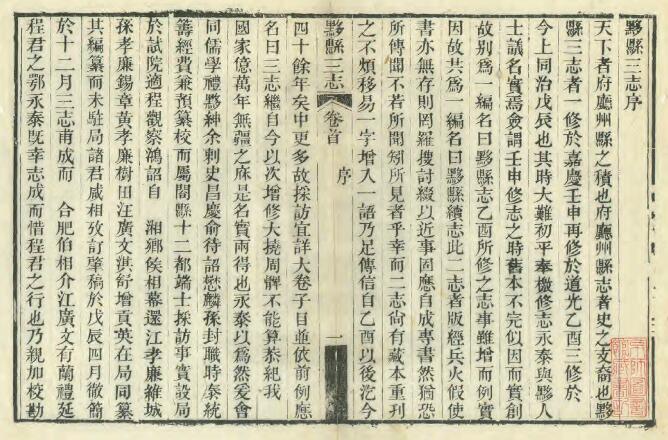 黟縣三志序
天下者府廳州縣之積也府廳州縣志者史之支裔也黟
縣三志者一修於嘉慶壬申再修於道光乙酉三修於
今上同治戊辰也其時大難初平奉檄修志永泰與黟人
士議名實焉僉謂壬申修志之時舊本不完似因而實創
故別爲一編名曰黟縣志乙酉所修之志事雖增而例實
因故共爲一編名曰黟縣續志此二志者版經兵火假使
書亦無存則罔羅搜討綴以近事固應自成專書然猶恐
所傳聞不若所聞矧所見者乎幸而二志尙有藏本重刋
之不煩移易一字增入一語乃足傳信自乙酉以後汔今
黟縣三志
卷首
序
一
四十餘年矣中更多故採訪宜詳大卷子目並依前例應
名曰三志繼自今以次增修大撓周髀不能算恭紀我
國家億萬年無疆之庥是名實兩得也永泰以爲然爰會
同儒學黟紳余刺史昌慶俞待詔懋麟孫封職時泰統
籌經費兼預纂校而屬閤縣十二都端士採訪事實設局
於試院適程觀察鴻詔自
湘鄉侯相幕還江孝廉維城
孫孝廉錫章黃孝廉樹田汪廣文淇舒增貢英在局同纂
其編纂而未駐局諸君咸相攷訂肇稿於戊辰四月徹簡
於十二月三志甫成而
合肥伯相介江廣文有蘭禮延
程君之鄂永泰旣幸志成而惜程君之行也乃親加校勘